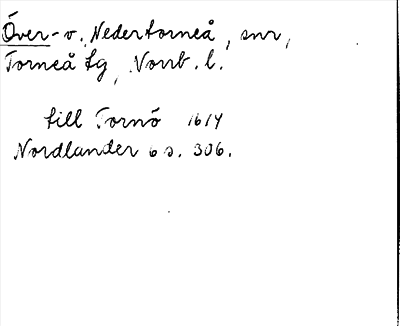 Över- o. Nedertorneå, snr,
Torneå tg, Norrb. l.
till Tornö 1614
Nordlander 6 s. 306.